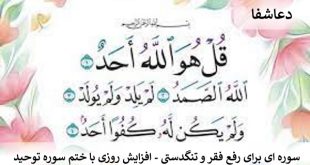 دعاشفا
بسم الله الرحمن الرحیم
قُلْ هُوَ ٱللَّهُ أَحَدٌ ١
ٱللَّهُ ٱلصَّمَدُ ٢ لَمْ يَلِدْ وَلَمْ يُولَدْ ٣
وَلَمْ يَكُن لَّهُۥ كُفُوًا أَحَدٌ ٤
سوره ای برای رفع فقر و تنگدستی - افزایش روزی با ختم سوره توحید